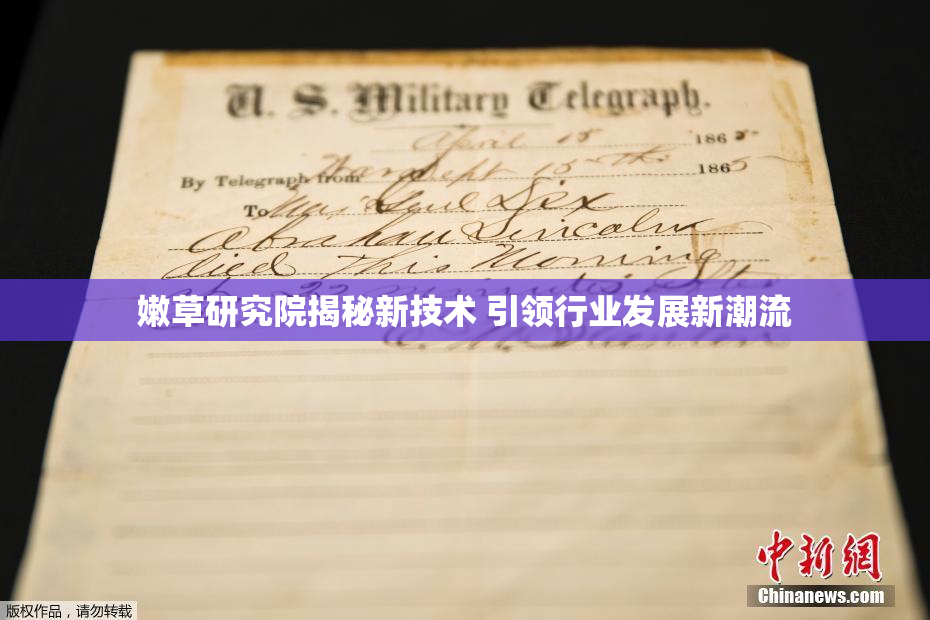 U. S. Military Telegraph.
April 15 1865
By Telegraph from War Dept 15th 1865
To Maj Genl Dix
Abraham Lincoln
died This Morning
at 22 minutes after
嫩草研究院揭秘新技术 引领行业发展新潮流
E. M. Stanton
中新網
Chinanews.com
版权作品，请勿转载